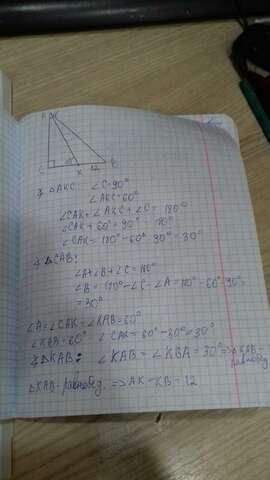 A
C 60° K 12 B
△AKC ∠C=90°
∠AKC=60°
∠CAK + ∠AKC + ∠C = 180°
∠CAK + 60° + 90° = 180°
∠CAK = 180° - 60° 90° = 30°
△CAB:
∠A+∠B+∠C=180°
∠B = 180°-∠C-∠A=180°-60°-90°=
=30°
∠A=∠CAK+∠KAB=60°
∠KAB=60° ∠CAK = 60°-30°=30°
△KAB: ∠KAB = ∠KBA = 30° ⇒ △KAB-
равнобед
△KAB-равнобед. ⇒ AK=KB=12